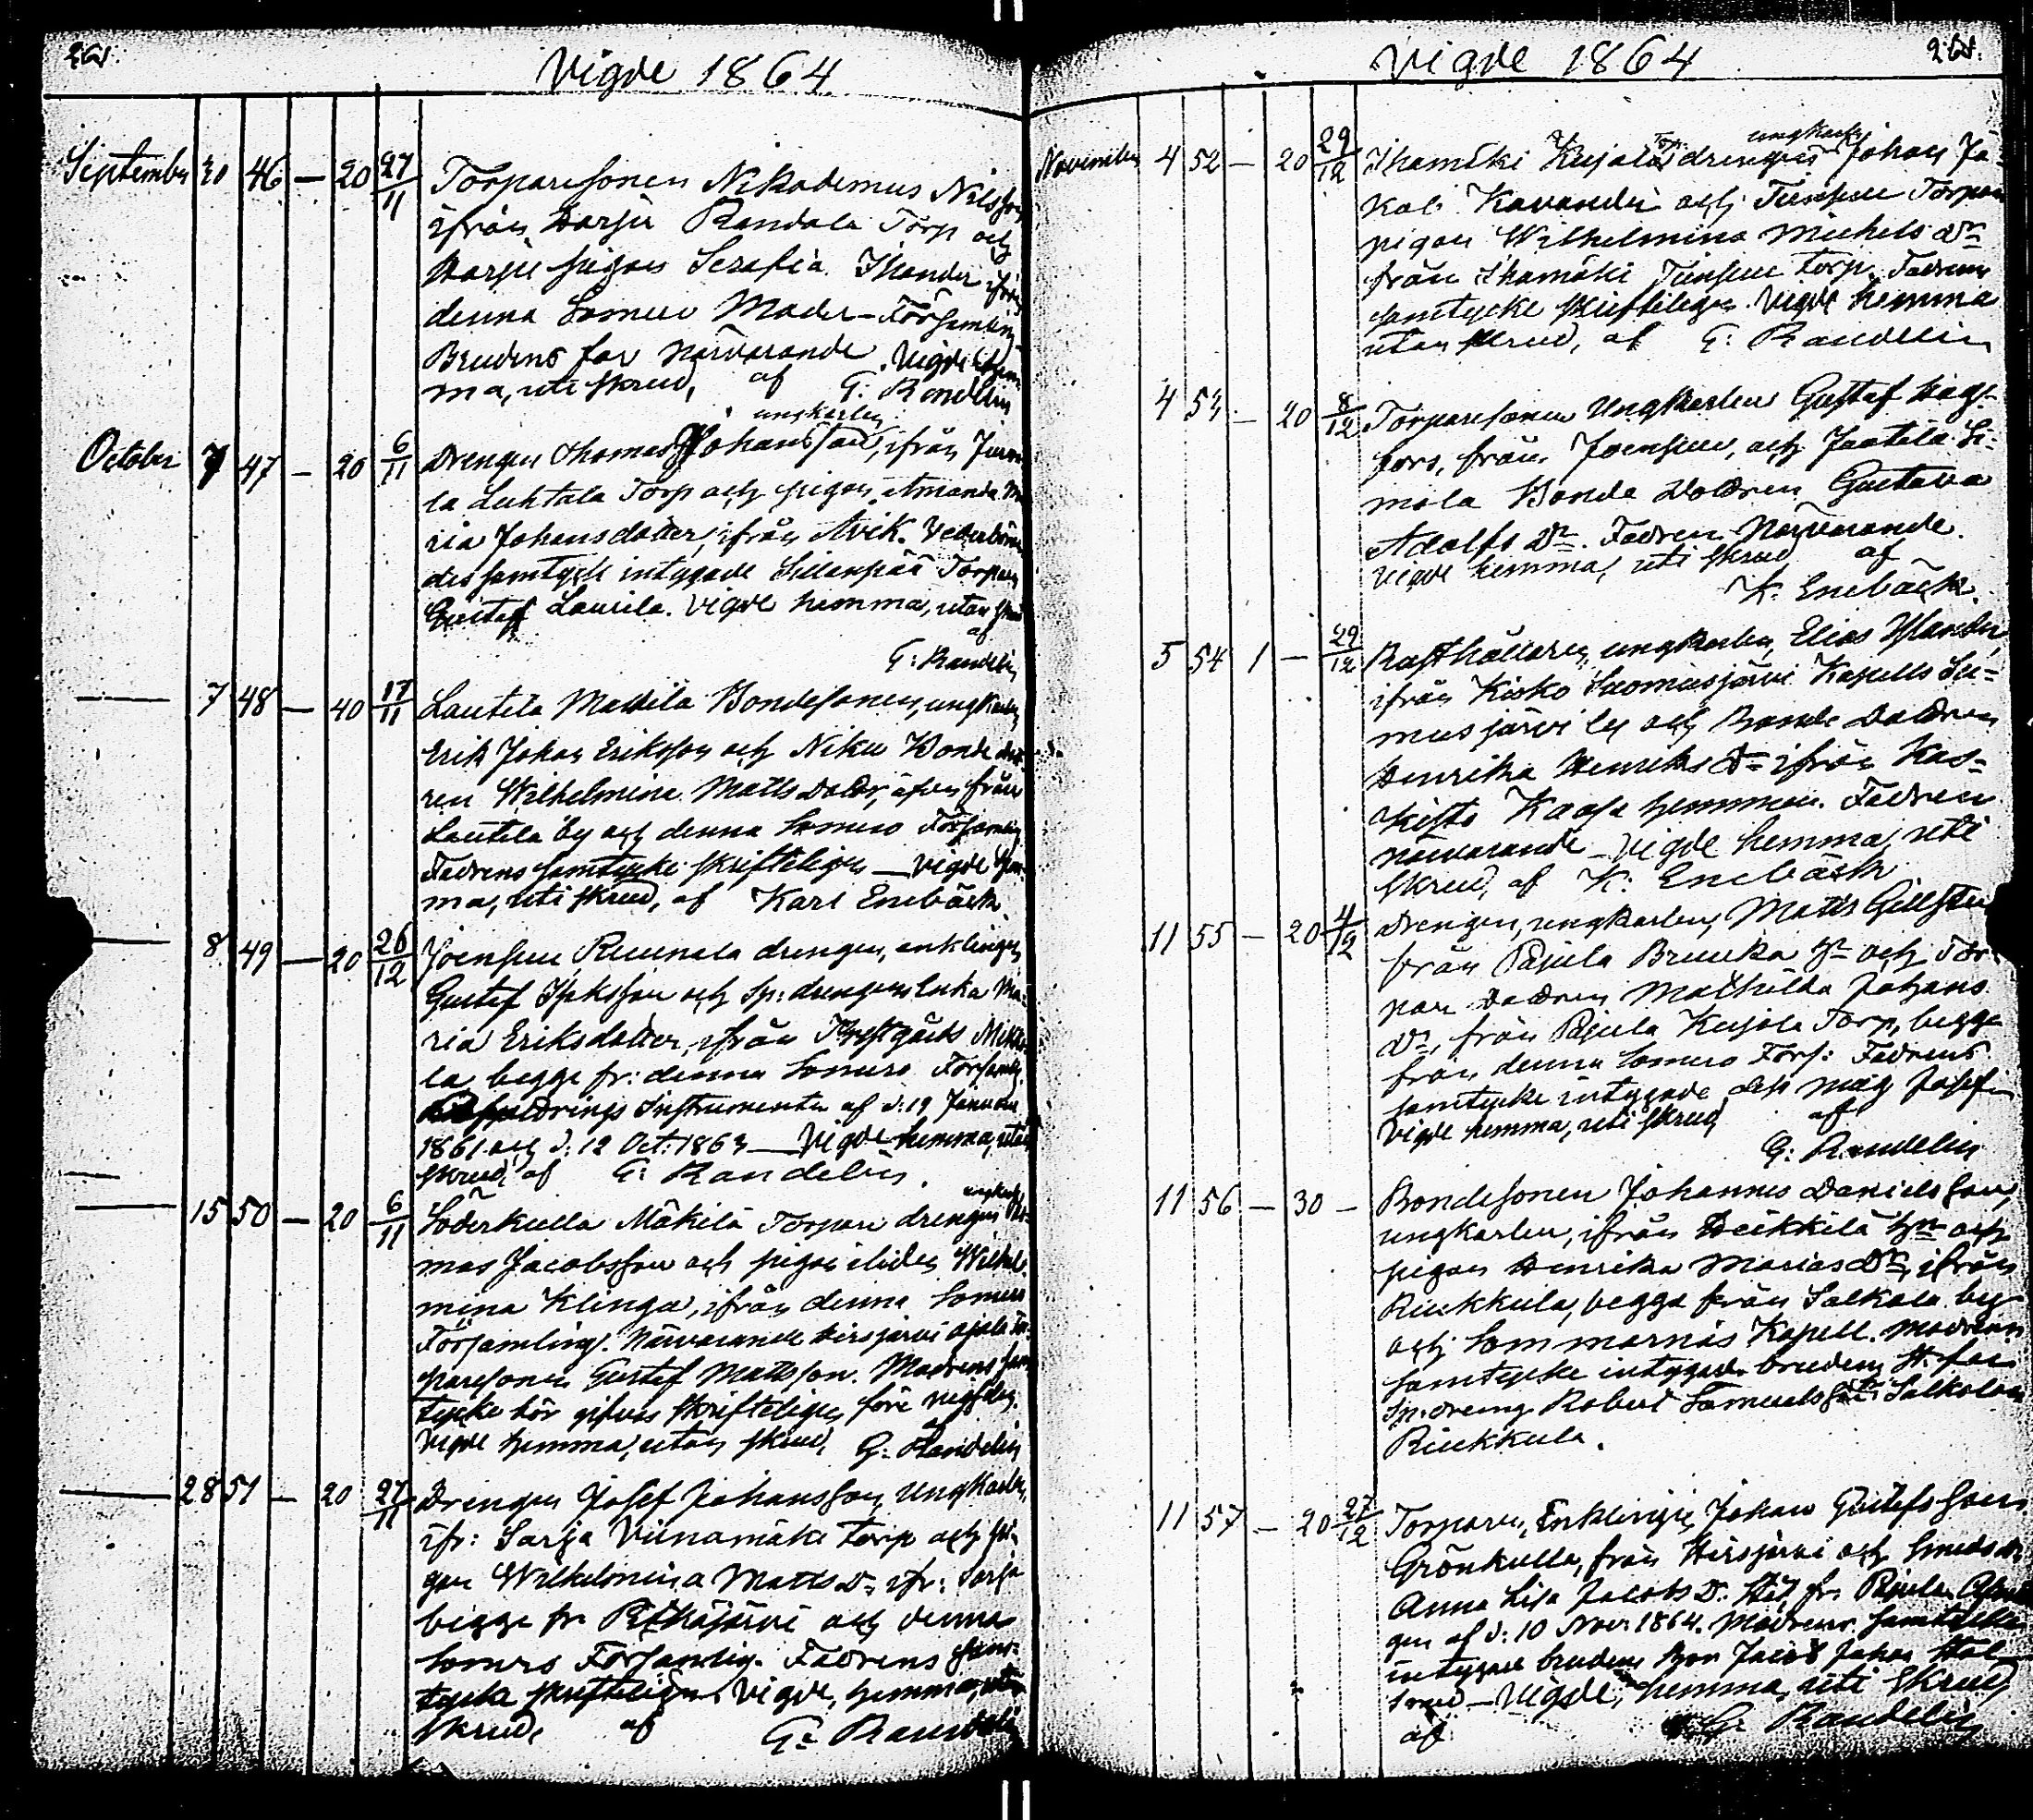 268.
Vigde 1864
September 30 46 — 20 27/11 Torparesonen Nikodemus Nilsson
ifrån Harju Randala Torp och
Harju pigan Serafia Thander ifrån
denna Somero Moder-Församling
Brudens far närvarande. Vigde hem-
ma, uti skrud, af G: Randelin
ungkarlen
October 7 47 — 20 6/11 Drengen Thomas Johansson, ifrån
la Luhtala Torp och pigan Amanda Ma
ria Johansdotter, ifrån Avik. Vederbören
des samtycke intygade Sillanpää Torparen
Gustaf Laurila. Vigde hemma, utan skrud
af
G: Randelin
7 48 — 40 17/11 Lautela Mattila Bondesonen, ungkarlen
Erik Johan Eriksson och Niku Bonde dot-
ren Wilhelmina Matts Dotter, äfven från
Lautela by och denna Somero Församling
Fadrens samtycke skrifteligen — Vigde hem-
ma, uti skrud, af Karl Enebäck.
8 49 — 20 26/12 Joensuu Ruunala drengen, enklingen
Gustaf Isaksson och Sp: drengens Enka Ma-
ria Eriksdotter, ifrån Mikko
la, begge fr: denna Somero Församling.
Instrumenten af d: 19 Januari
1861 och d: 12 Oct: 1863 — Vigde hemma, utan
skrud, af G: Randelin.
ungkarlen
15 50 — 20 6/11 Söderkulla Mäkilä Torpare drengen Tho-
mas Jacobsson och pigan Wilhel-
mina Klinga, ifrån denna Somero
Församling. Närvarande Hirsjärvi Ojala Tor-
paresonen Gustaf Mattsson. Modrens sam
tycke bör gifvas skrifteligen före
af
Vigde hemma, utan skrud, G: Randelin
28 51 — 20 27/11 Drengen Josef Johansson, Ungkarlen,
ifr: Sarja Viinamäki torp och pi-
gan Wilhelmina Matts Dr ifr: Sarja
begge fr. Pitkäjärvi och denna
Somero Församling. Fadrens sam-
tycke skrifteligen. Vigde, hemma, utan
skrud, af G: Randelin
Vigde 1864
268.
Torp. ungkarlen
November 4 52 — 20 29/12 Ihamäki Kujala drengen Johan Ja-
kob Kavander och Torpare
pigan Wilhelmina Michels Dr
från Ihamäki torp. Fadrens
samtycke skrifteligen. Vigde hemma
utan skrud, af G: Randelin
4 53 — 20 8/12 Torparesonen Ungkarlen Gustaf Hag-
fors, från Joensuu, och Jaatila Si-
mola Bonde Dottren Gustava
Adolfs Dr. Fadren Närvarande.
Vigde hemma, uti skrud af
K. Enebäck.
5 54 1 — 29/12 Rusthållaren, ungkarlen, Elias
ifrån Kisko Suomusjärvi Kapells Su-
musjärvi by och Bonde Dottren
Henrika Henriks Dr ifrån Kas-
kisto Kaasa hemman. Fadren
närvarande — Vigde hemma, uti
skrud, af K: Enebäck
11 55 — 20 4/12 Drengen, ungkarlen, Matts
från Pajula Bruuka hn och Tor-
pare Dottren Mathilda Johans
Dr, från Pajula Kujala Torp, begge
från denna Somero Förs: Fadrens
samtycke intygade dess måg Josef
Vigde hemma, uti skrud af
G: Randelin
11 56 — 30 — Bondesonen Johannes Danielsson,
ungkarlen, ifrån Heikkilä hn och
pigan Henrika Marias Dr, ifrån
Riukkula, begge från Salkola by
och Sommarnäs Kapell. Modrens
samtycke intygade brudens St. far
Sp. dreng Robert Samuelsson Salkola
Riukkula.
11 57 — 20 27/12 Torparen, Enklingen Johan Gustafsson
Grönkulla, från Hirsjärvi och Smeds Dr
Anna Lisa Jacobs D. fr. Pajula
gen af d: 10 Nov. 1864. Modrens samtycke
intygade brudens bror Jacob Johan
— Vigde, hemma, uti skrud
af G: Randelin